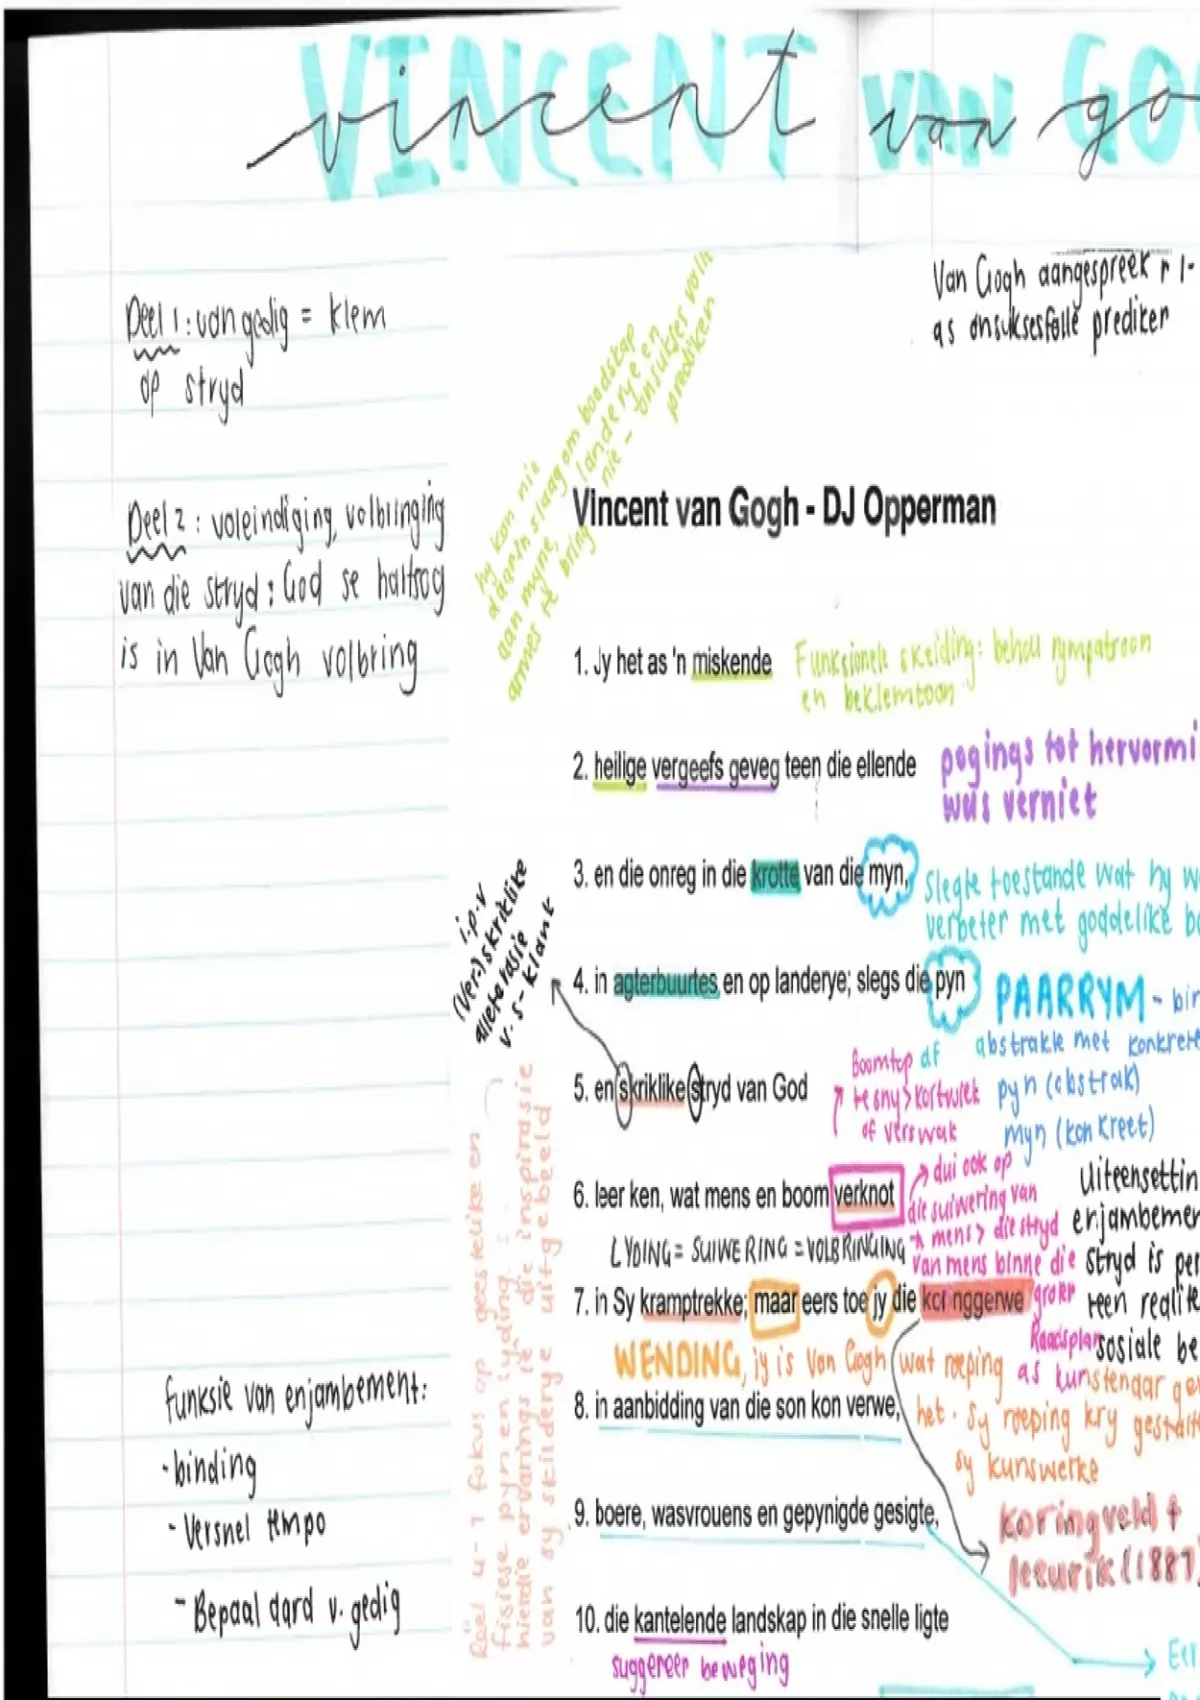 VINCENT VAN GO
vincent van go
Van Gogh aangespreek r 1-
as onsuksesfolle prediker
Deel 1: van gedig = klem
op stryd
hy kon nie
daarin slaag om boodskap
aan myne, landerye en
armes te bring nie - onsuksesvolle
prediken
Deel 2 : voleindiging, volbringing
van die stryd : God se hartsog
is in Van Gogh volbring
Vincent van Gogh - DJ Opperman
1. Jy het as 'n miskende
Funksionele skeiding: behou rympatroon
en beklemtoon
2. heilige vergeefs geveg teen die ellende
pogings tot hervormi
was verniet
3. en die onreg in die krotte van die myn,
slegte toestande wat hy w
verbeter met goddelike bo
i.p.v
(Ver-)skriklike
alleterasie
v. s - klank
4. in agterbuurtes en op landerye; slegs die pyn
PAARRYM - bin
abstrakte met konkrete
pyn (abstrak)
myn (konkreet)
5. en skriklike stryd van God
Boomtop af
te sny > kortwiek
of verswak
6. leer ken, wat mens en boom verknot
dui ook op
die suiwering van
mens > die stryd
van mens binne die
groter
Raadsplan
Uiteensettin
enjambemen
Stryd is per
teen realite
sosiale be
LYDING = SUIWERING = VOLBRINGING
7. in Sy kramptrekke; maar eers toe jy die kor nggerwe
WENDING, jy is Van Gogh wat roeping as kunstenaar gev
8. in aanbidding van die son kon verwe,
het. Sy roeping kry gestalt
sy kunswerke
9. boere, wasvrouens en gepynigde gesigte,
koringveld +
leeurik (1887)
10. die kantelende landskap in die snelle ligte
suggereer beweging
Reël 4-7 fokus op geestelike en
fisiese pyn en lyding =
hierdie ervarings is die inspirasie
van sy skilderye uitgebeeld
funksie van enjambement:
- binding
- Versnel tempo
- Bepaal aard v. gedig